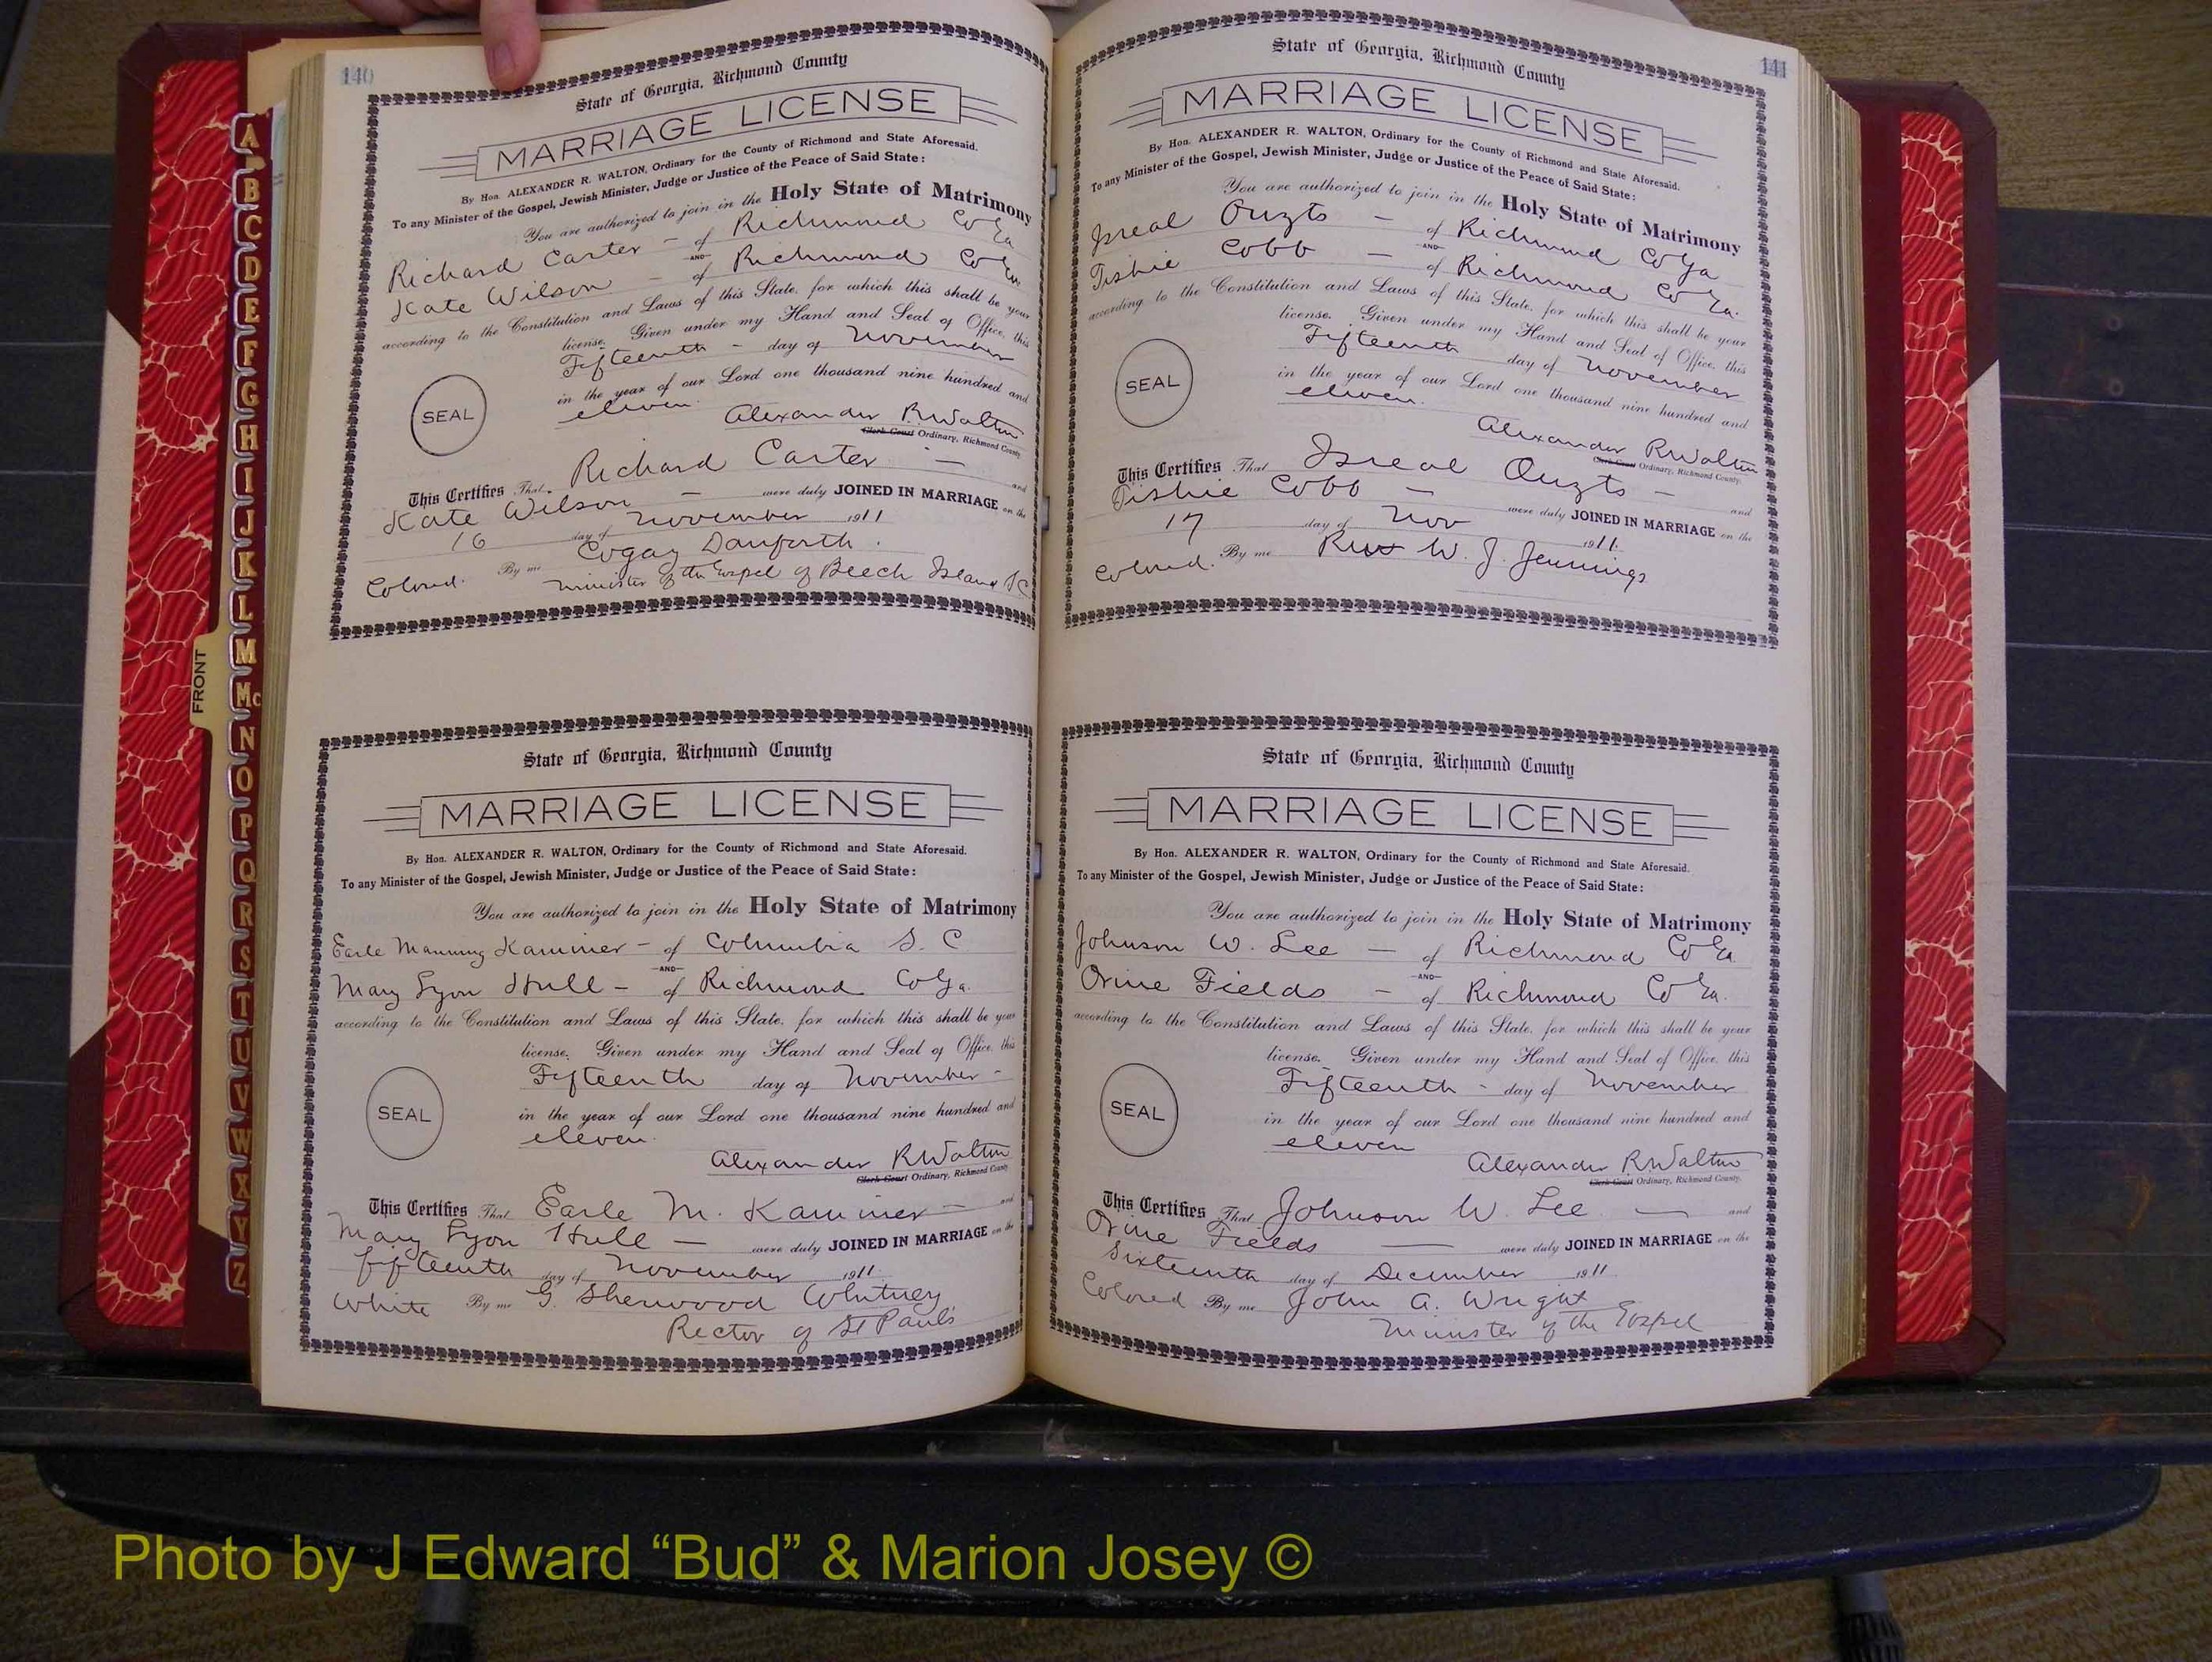 140
State of Georgia, Richmond County
MARRIAGE LICENSE
By Hon. ALEXANDER R. WALTON, Ordinary for the County of Richmond and State Aforesaid.
To any Minister of the Gospel, Jewish Minister, Judge or Justice of the Peace of Said State:
You are authorized to join in the Holy State of Matrimony
Richard Carter - of Richmond Co Ga
AND
Kate Wilson - of Richmond Co Ga
according to the Constitution and Laws of this State, for which this shall be your
license. Given under my Hand and Seal of Office, this
Fifteenth - day of November
in the year of our Lord one thousand nine hundred and
eleven.
SEAL
Alexander R Walton
Clerk Court Ordinary, Richmond County
This Certifies That Richard Carter - and
Kate Wilson - were duly JOINED IN MARRIAGE on the
16 day of November 1911
Colored. By me Danforth.
Minister of the Gospel of Beech Island SC
State of Georgia, Richmond County
MARRIAGE LICENSE
By Hon. ALEXANDER R. WALTON, Ordinary for the County of Richmond and State Aforesaid.
To any Minister of the Gospel, Jewish Minister, Judge or Justice of the Peace of Said State:
You are authorized to join in the Holy State of Matrimony
Earle Manning Kaminer - of Columbia S. C
AND
Mary Lyon Hull - of Richmond Co Ga.
according to the Constitution and Laws of this State, for which this shall be your
license. Given under my Hand and Seal of Office, this
Fifteenth day of November -
in the year of our Lord one thousand nine hundred and
eleven.
SEAL
Alexander R Walton
Clerk Court Ordinary, Richmond County
This Certifies That Earle M. Kaminer - and
Mary Lyon Hull - were duly JOINED IN MARRIAGE on the
fifteenth day of November 1911
White By me G. Sherwood Whitney
Rector of St Paul's
141
State of Georgia, Richmond County
MARRIAGE LICENSE
By Hon. ALEXANDER R. WALTON, Ordinary for the County of Richmond and State Aforesaid.
To any Minister of the Gospel, Jewish Minister, Judge or Justice of the Peace of Said State:
You are authorized to join in the Holy State of Matrimony
Isreal Ouzts - of Richmond Co Ga
AND
Tishie Cobb - of Richmond Co Ga.
according to the Constitution and Laws of this State, for which this shall be your
license. Given under my Hand and Seal of Office, this
Fifteenth day of November
in the year of our Lord one thousand nine hundred and
eleven.
SEAL
Alexander R Walton
Clerk Court Ordinary, Richmond County
This Certifies That Isreal Ouzts - and
Tishie Cobb - were duly JOINED IN MARRIAGE on the
17 day of Nov 1911.
Colored. By me W. J. Jennings
State of Georgia, Richmond County
MARRIAGE LICENSE
By Hon. ALEXANDER R. WALTON, Ordinary for the County of Richmond and State Aforesaid.
To any Minister of the Gospel, Jewish Minister, Judge or Justice of the Peace of Said State:
You are authorized to join in the Holy State of Matrimony
Johnson W. Lee - of Richmond Co Ga
AND
Orine Fields - of Richmond Co Ga.
according to the Constitution and Laws of this State, for which this shall be your
license. Given under my Hand and Seal of Office, this
Fifteenth - day of November
in the year of our Lord one thousand nine hundred and
eleven
SEAL
Alexander R Walton
Clerk Court Ordinary, Richmond County.
This Certifies That Johnson W. Lee - and
Orine Fields - were duly JOINED IN MARRIAGE on the
Sixteenth day of December 1911
Colored By me John A. Wright
Minister of the Gospel
A
B
C
D
E
F
G
H
I
J
K
L
M
Mc
N
O
P
Q
R
S
T
U
V
W
X
Y
Z
FRONT
Photo by J Edward “Bud” & Marion Josey ©